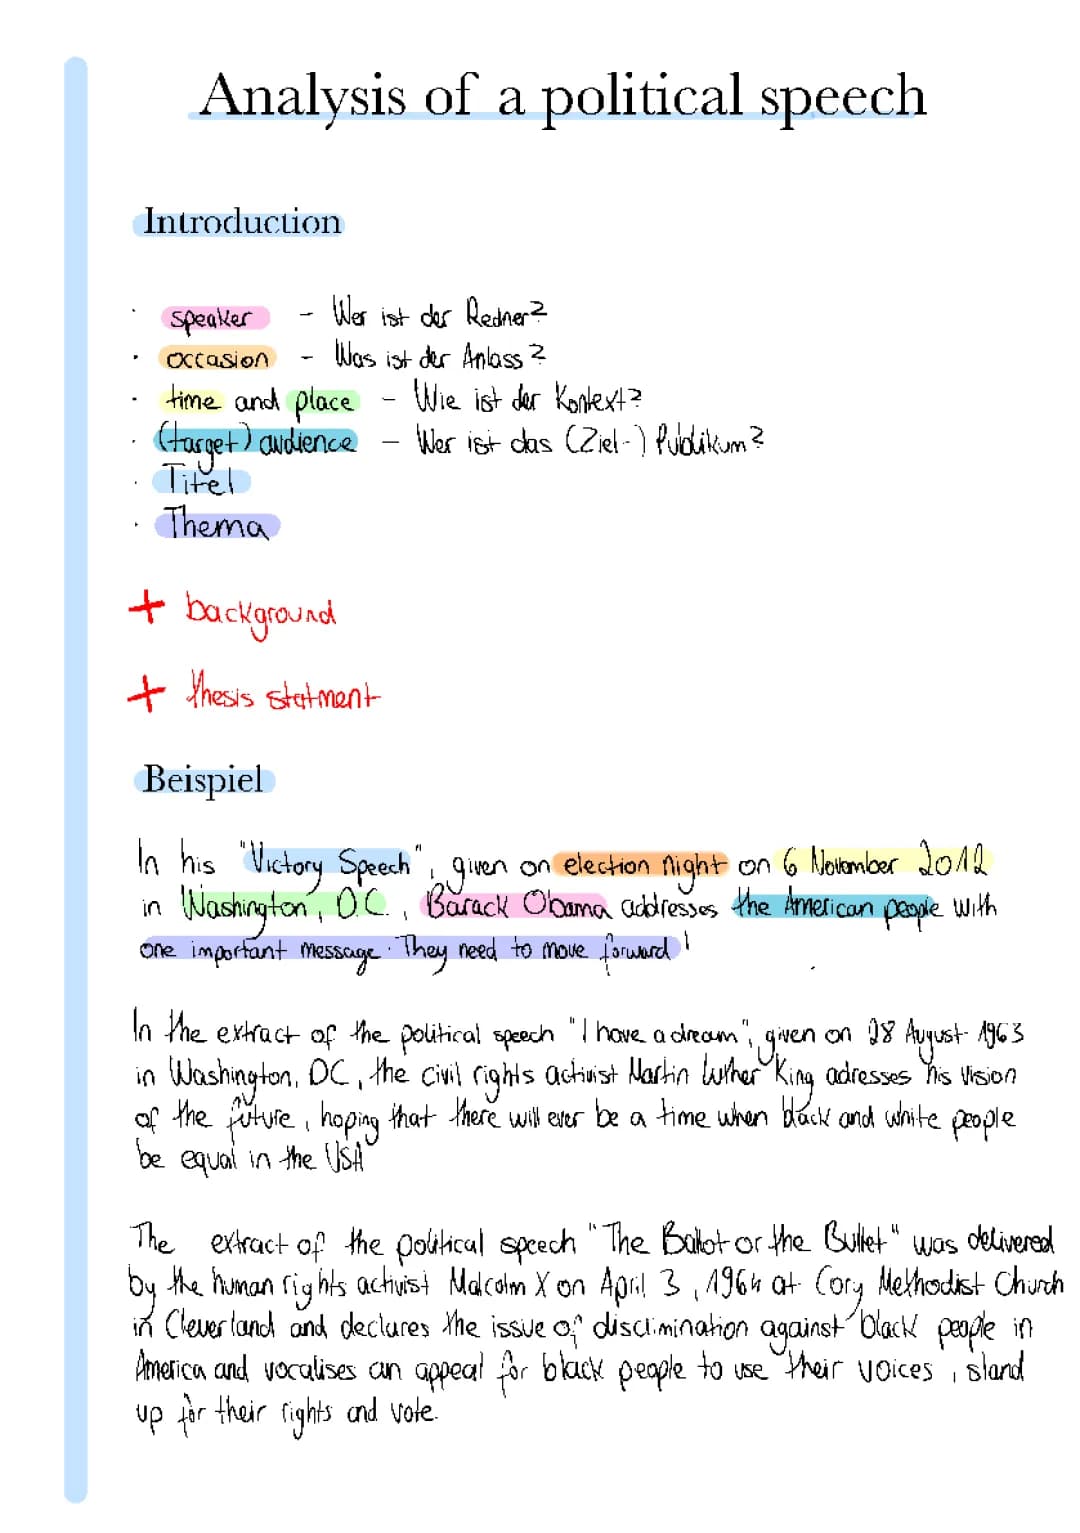 Analysis of a political speech
Introduction
· speaker - Wer ist der Redner?
· occasion - Was ist der Anlass?
· time and place - Wie ist der Kontext?
· (target) audience - Wer ist das (Ziel-) Publikum?
· Titel
· Thema
+ background
+ thesis statment
Beispiel
In his "Victory Speech", given on election night on 6 November 2012
in Washington, D.C., Barack Obama addresses the American people with
one important message: They need to move forward!
In the extract of the political speech "I have a dream", given on 28 August 1963
in Washington, DC, the civil rights activist Martin Luther King adresses his vision
of the future, hoping that there will ever be a time when black and white people
be equal in the USA
The extract of the political speech "The Ballot or the Bullet" was delivered
by the human rights activist Malcolm X on April 3, 1964 at Cory Methodist Church
in Cleverland and declares the issue of discrimination against black people in
America and vocalises an appeal for black people to use their voices, stand
up for their rights and vote.